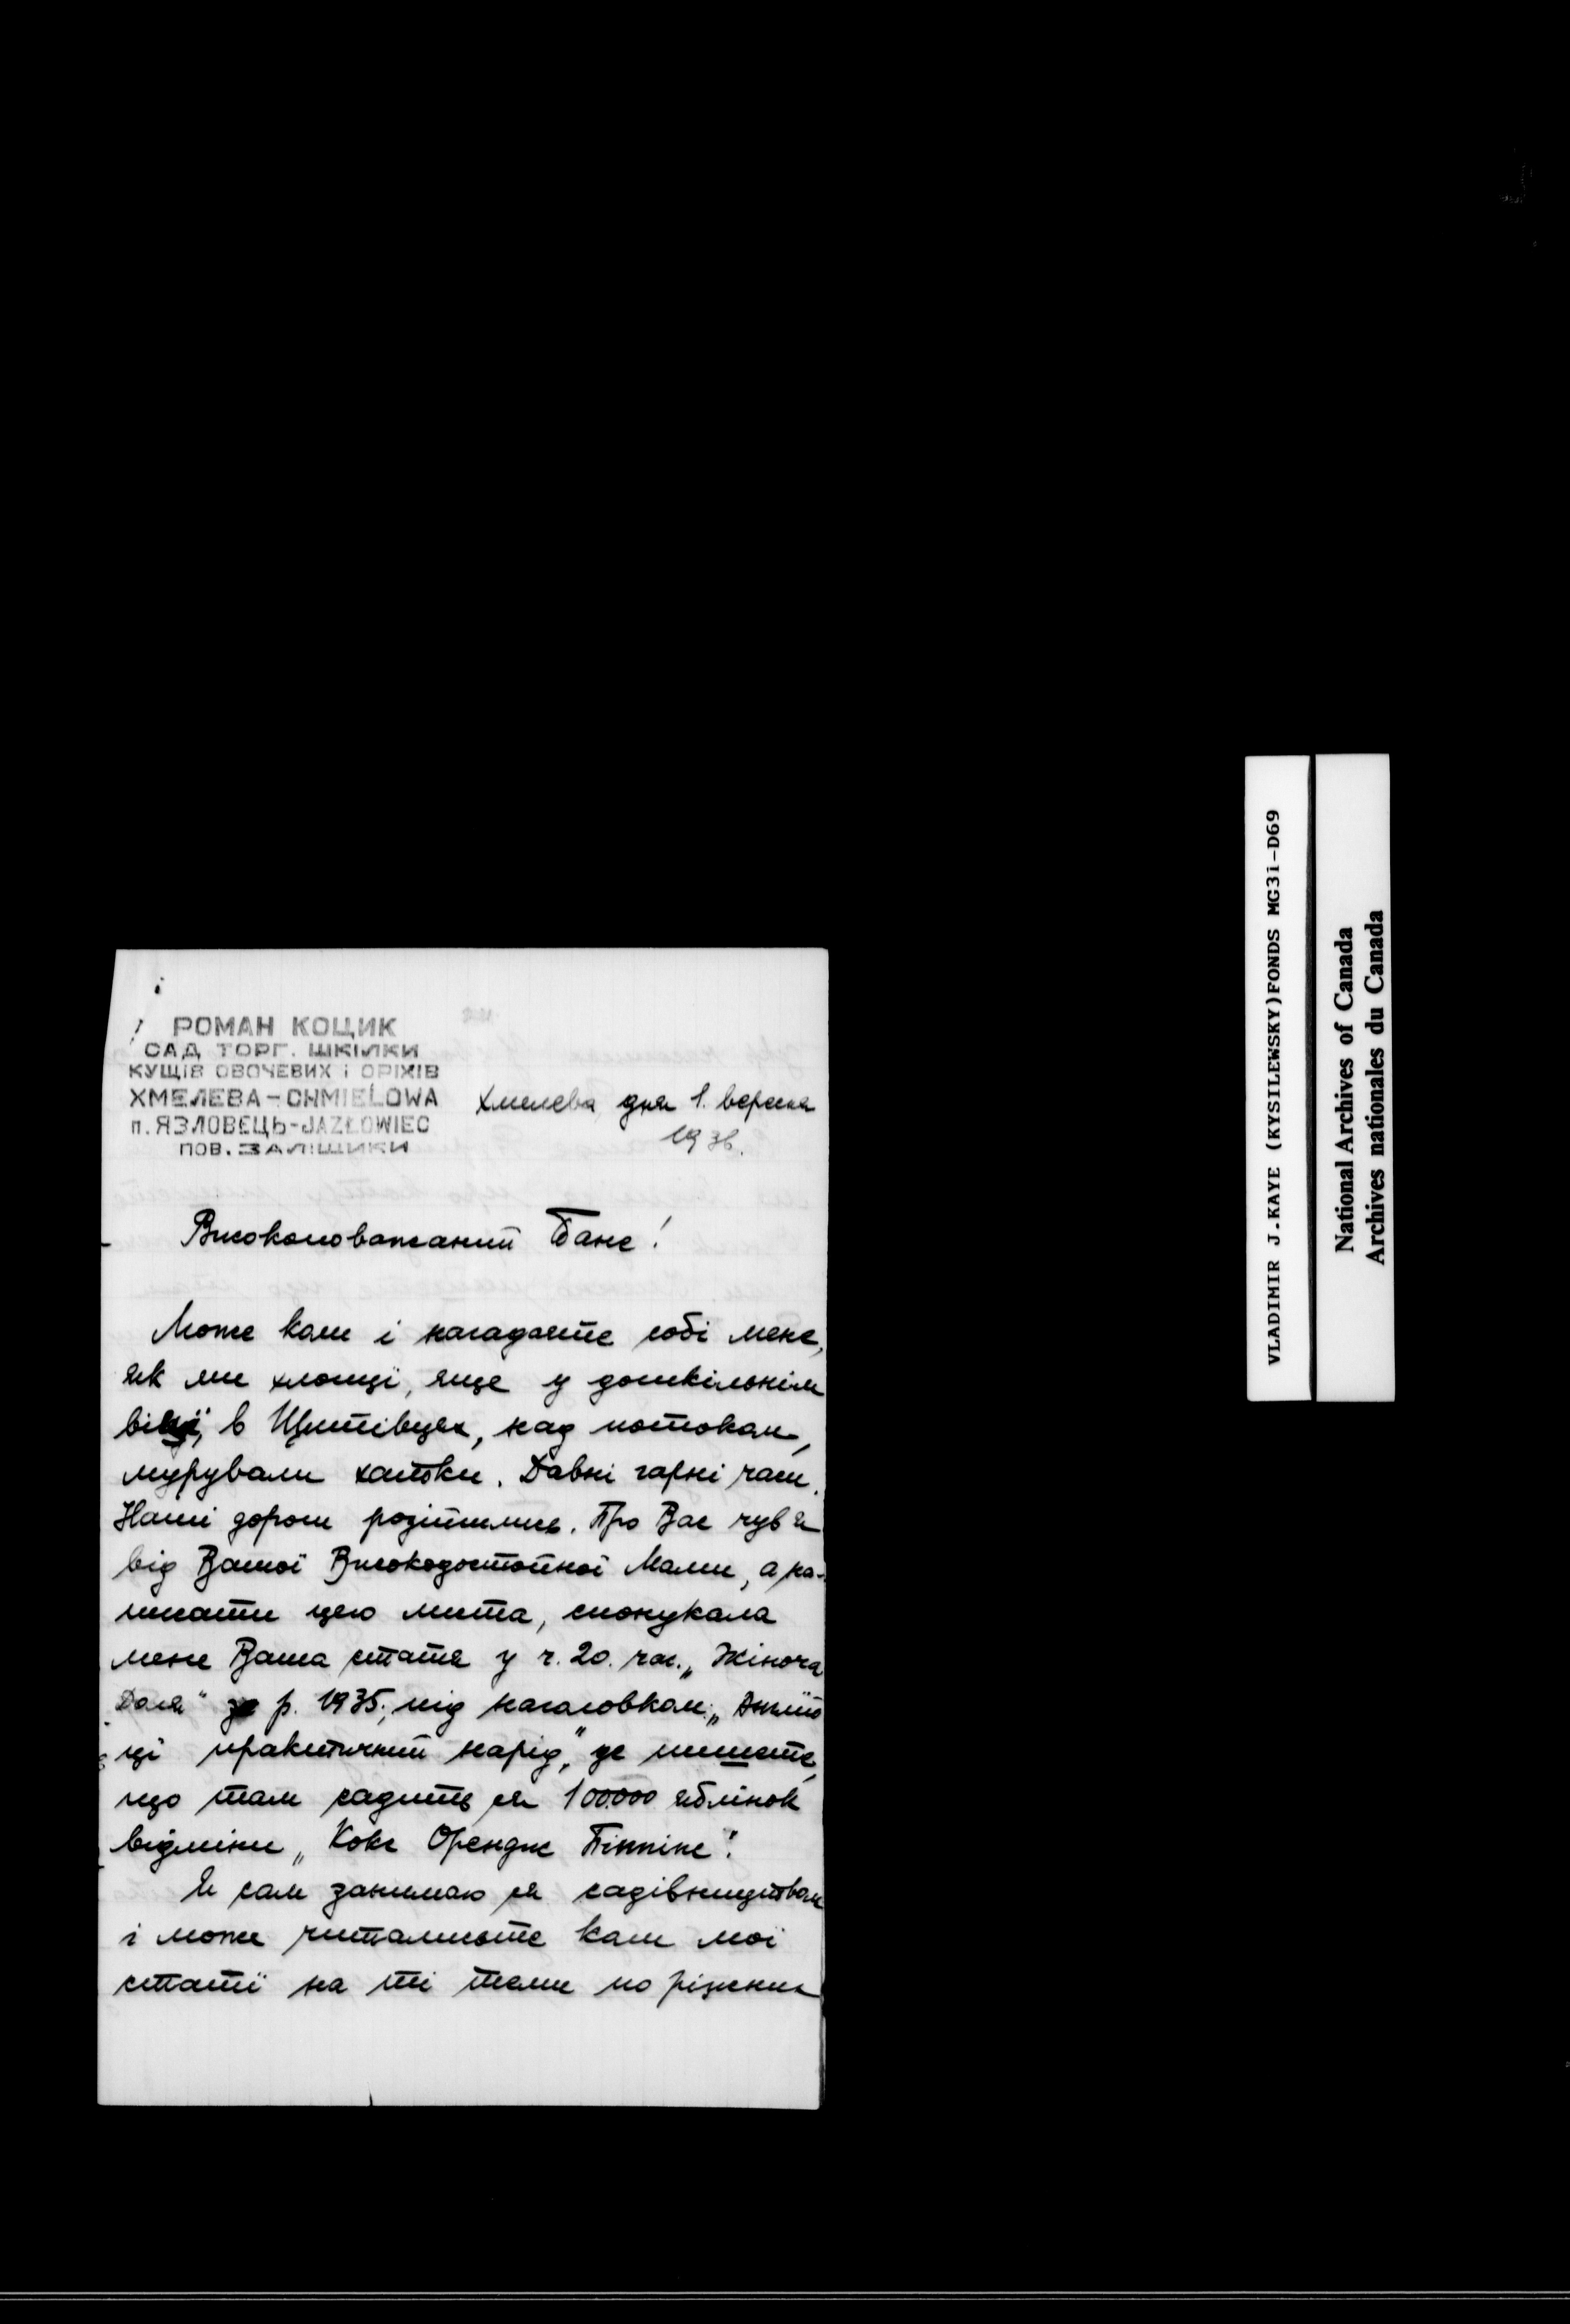 РОМАН КОЦИК
САД ТОРГ. ШКІЛКИ
КУЩІВ ОВОЧЕВИХ і ОРІХІВ
ХМЕЛЕВА - CHMIELOWA
п. ЯЗЛОВЕЦЬ-JAZŁOWIEC
ПОВ. ЗАЛІЩИКИ
Хмелева дня 1. вересня
1936.
Високоповажаний Пане!
Може коли і нагадаєте собі мене,
як ми хлопці, яще у дошкільнім
віці, в Цвитівцях, над потоком,
мурували хатки. Давні гарні часи.
Наші дороги розійшлись. Про Вас чув я
від Вашої Високодостойної Мами, а на-
писати цего листа, спонукала
мене Ваша статя у ч. 20. час. „Жіноча
Доля" за р. 1935, під наголовком: „Англій
ці практичний нарід," де пишете,
що там садить ся 100.000 яблінок
відміни „Кокс Орендж Піппінс".
Я сам занимаю ся садівництвом
і може читалисьте коли мої
статії на ті теми по ріжних
VLADIMIR J.KAYE (KYSILEWSKY)FONDS MG31-D69
National Archives of Canada
Archives nationales du Canada